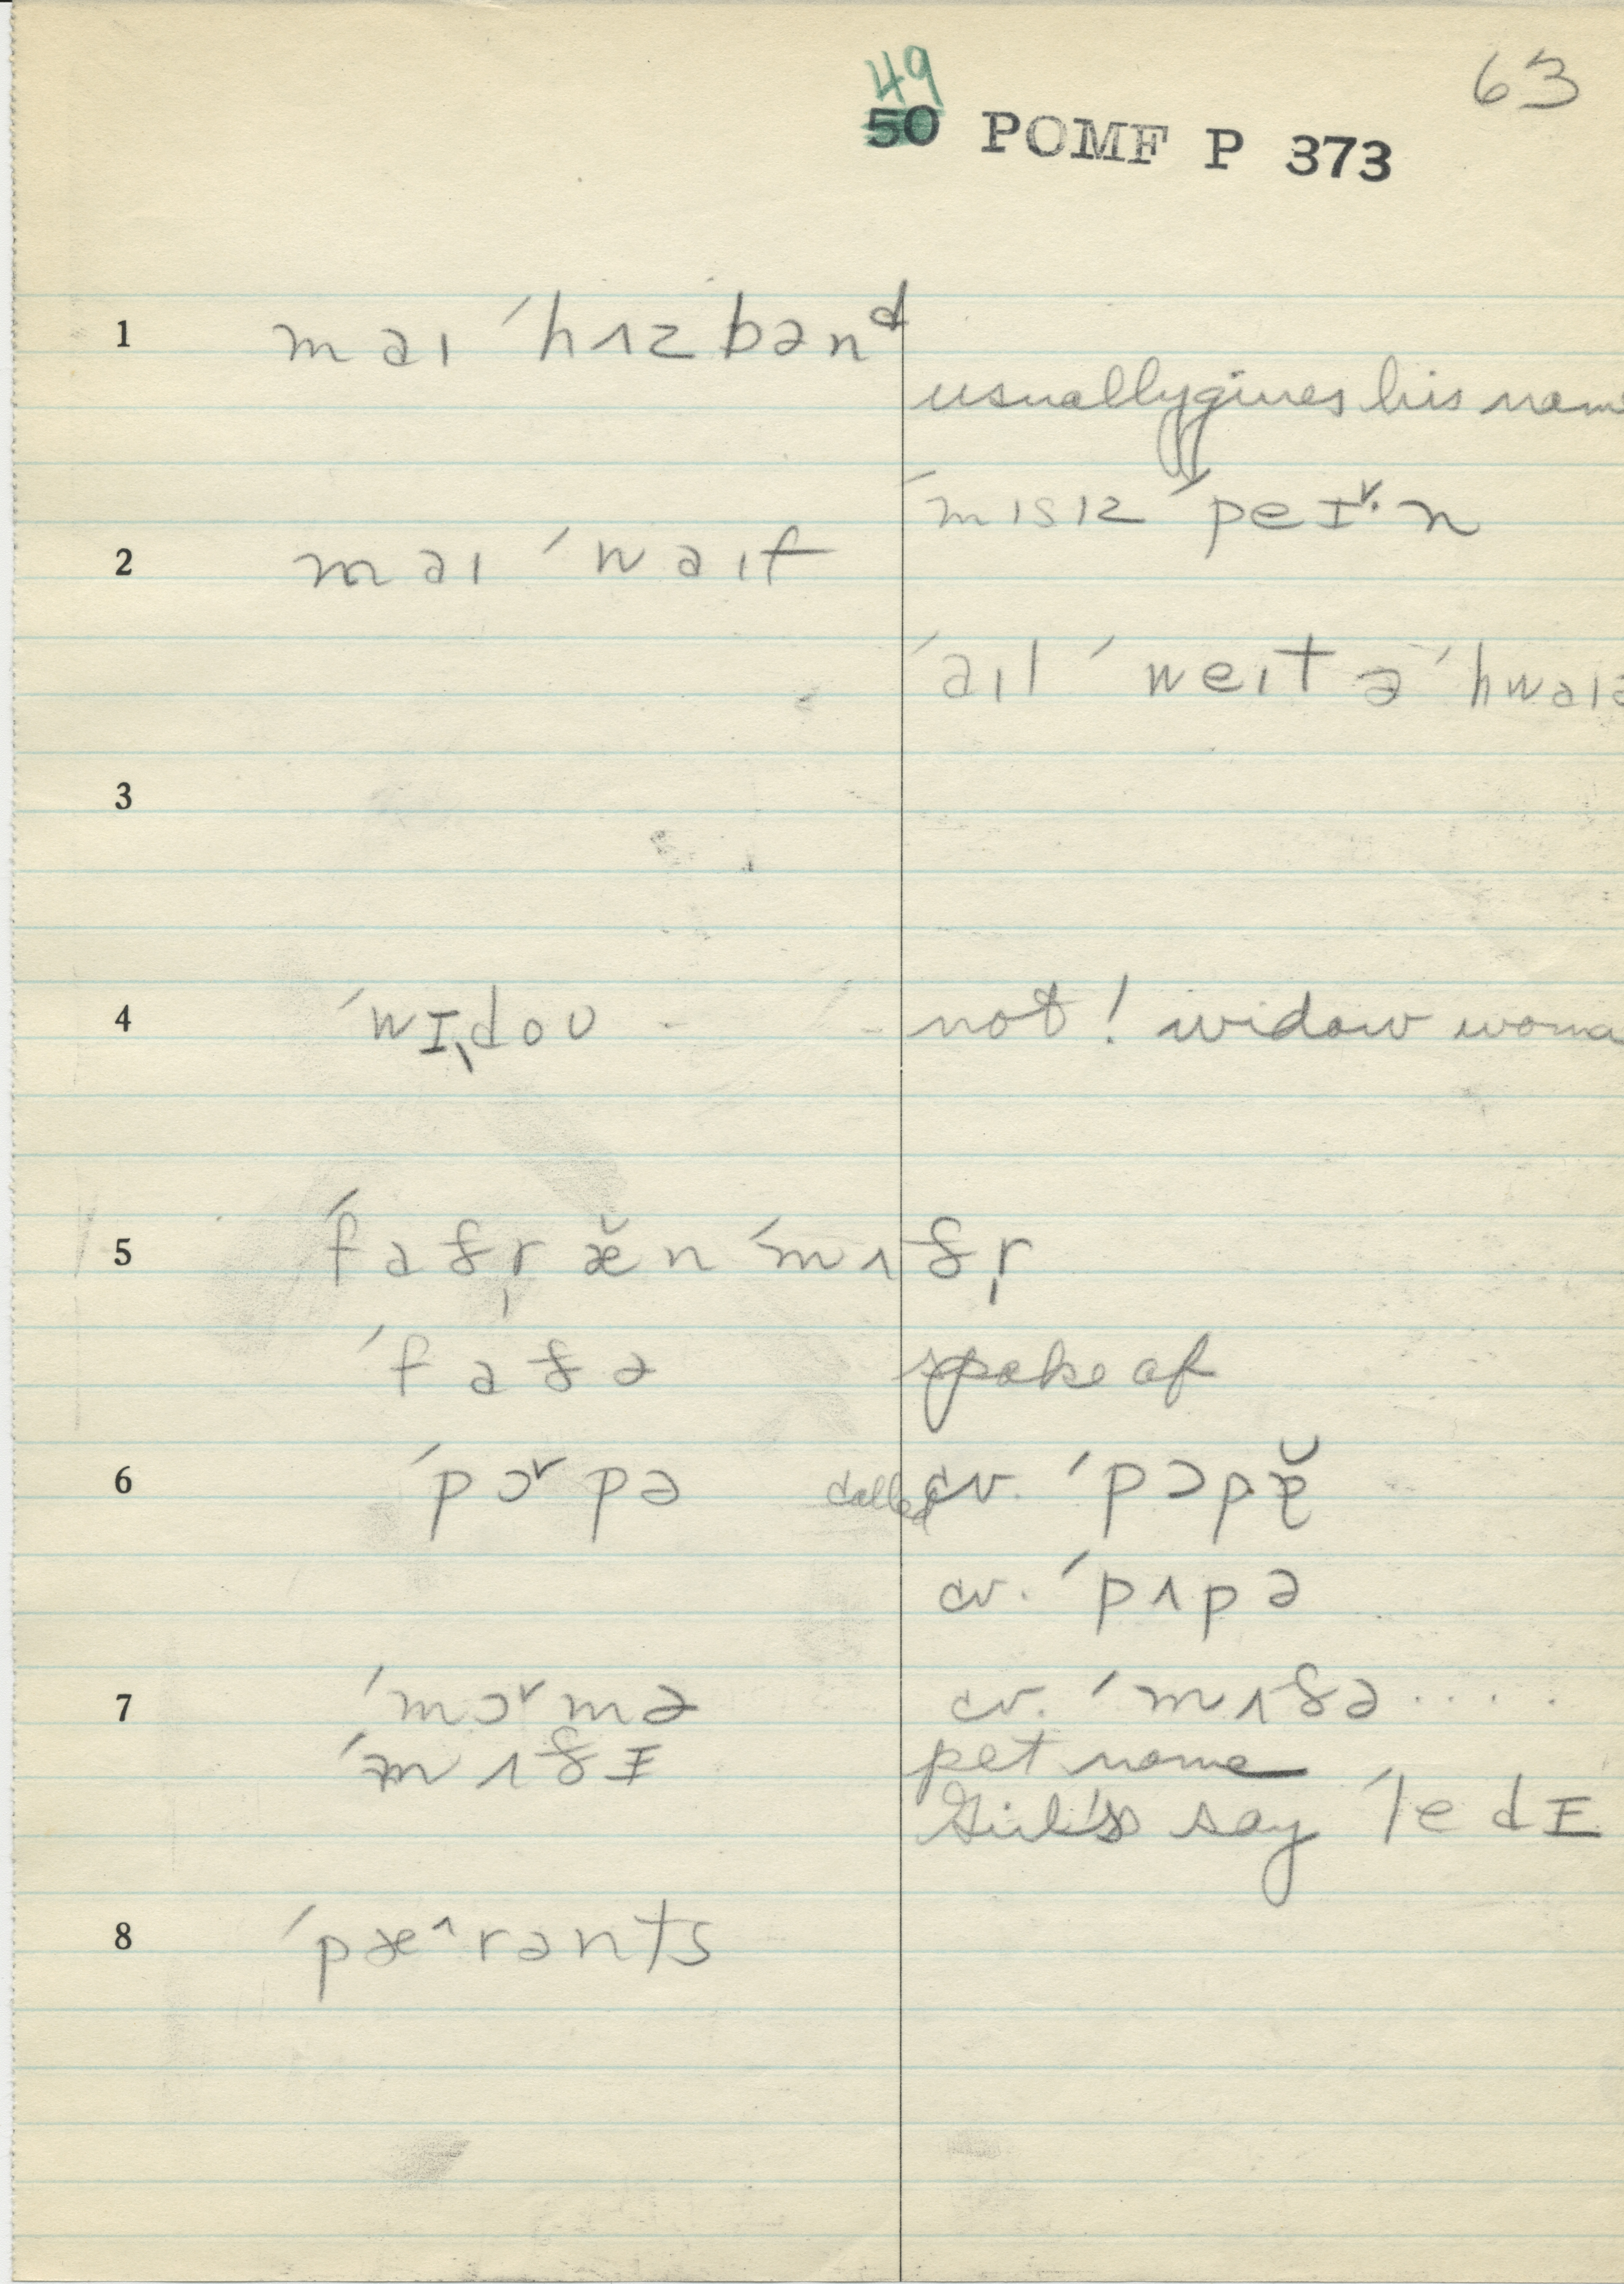 49 63
50 POMF P 373
1 maɪ ˈhɜzbənᵈ
usually gives his nam
ˈmɪsɪz ˈpeɪ˅·n
2 maɪ ˈwaɪf
ˈaɪl ˈweɪt ə ˈhwaɪə
3
4 ˈwɪ̖dou - - not! widow woma
5 ˈfaðr̩ æ̆n ˈmʌðr̩
ˈfaðə spoke of
6 ˈpɔ˅pə called cv. ˈpɔpɐ̆
cv. ˈpʌpə
7 ˈmɔ˅mə cv. ˈmʌðə ....
ˈmʌðɪ pet name
Girls say ˈledɪ
8 ˈpæ^rənts